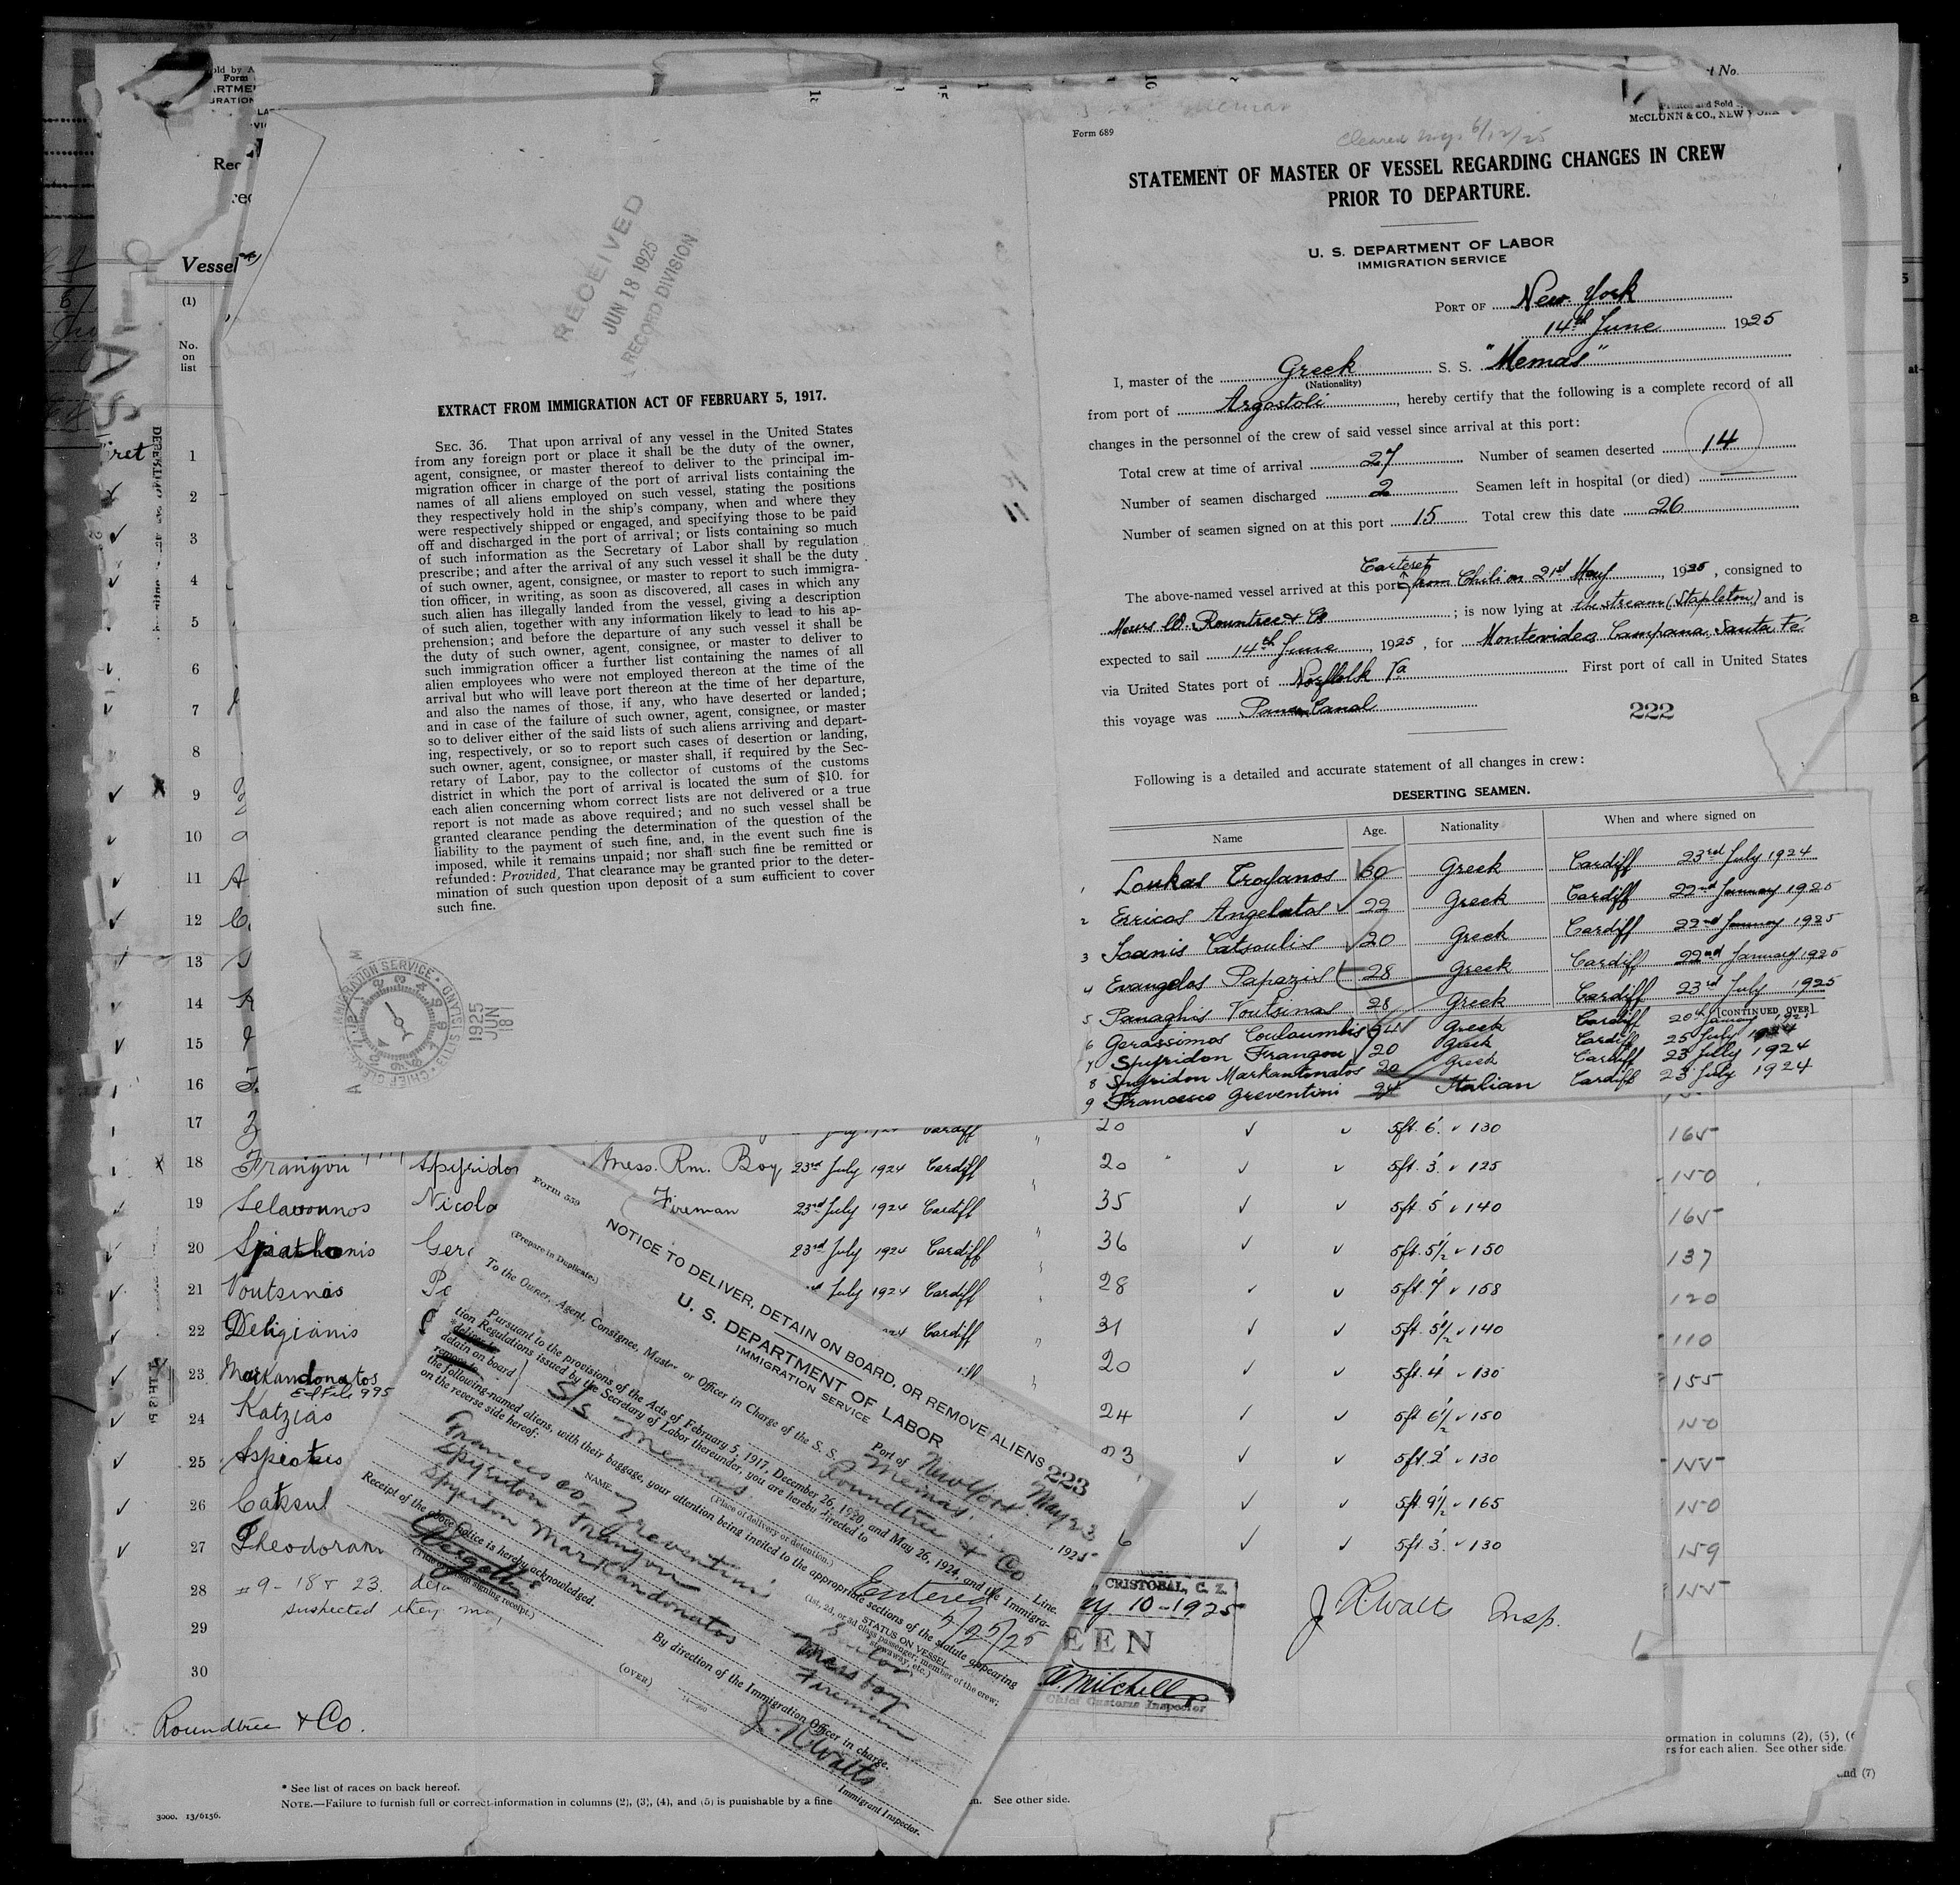 Form 689
Cleared
6/12/25
McCLUNN & CO., NEW YORK
STATEMENT OF MASTER OF VESSEL REGARDING CHANGES IN CREW
PRIOR TO DEPARTURE.
U. S. DEPARTMENT OF LABOR
IMMIGRATION SERVICE
PORT OF New York
14th June 1925
I, master of the Greek S. S. "Memas"
(Nationality)
from port of Argostoli, hereby certify that the following is a complete record of all
changes in the personnel of the crew of said vessel since arrival at this port:
Total crew at time of arrival 27 Number of seamen deserted 14
Number of seamen discharged 2 Seamen left in hospital (or died)
Number of seamen signed on at this port 15 Total crew this date 26
Carteret
The above-named vessel arrived at this port from Chili on 21st May, 1925, consigned to
Messrs W. Rountree & Co; is now lying at the stream (Stapleton) and is
expected to sail 14th June, 1925, for Montevideo Campana Santa Fé
via United States port of Norfolk Va First port of call in United States
this voyage was Panama Canal
222
Following is a detailed and accurate statement of all changes in crew:
DESERTING SEAMEN.
Name Age. Nationality When and where signed on
1 Loukas Troyanos 30 Greek Cardiff 23rd July 1924
2 Erricos Angelatos 22 Greek Cardiff 22nd January 1925
3 Ioanis Catsoulis 20 Greek Cardiff 22nd January 1925
4 Evangelos Papazis 28 Greek Cardiff 22nd January 1925
5 Panaghis Voutsinas 28 Greek Cardiff 23rd July 1925
(CONTINUED OVER)
6 Gerassimos Couloumbis Greek Cardiff
7 Spyridon Frangou 20 Greek Cardiff 25 July 1924
8 Spyridon Markantonatos 20 Greek Cardiff 23 July 1924
9 Francesco Greventini 24 Italian Cardiff 23 July 1924
RECEIVED
JUN 18 1925
RECORD DIVISION
EXTRACT FROM IMMIGRATION ACT OF FEBRUARY 5, 1917.
SEC. 36. That upon arrival of any vessel in the United States
from any foreign port or place it shall be the duty of the owner,
agent, consignee, or master thereof to deliver to the principal im-
migration officer in charge of the port of arrival lists containing the
names of all aliens employed on such vessel, stating the positions
they respectively hold in the ship's company, when and where they
were respectively shipped or engaged, and specifying those to be paid
off and discharged in the port of arrival; or lists containing so much
of such information as the Secretary of Labor shall by regulation
prescribe; and after the arrival of any such vessel it shall be the duty
of such owner, agent, consignee, or master to report to such immigra-
tion officer, in writing, as soon as discovered, all cases in which any
such alien has illegally landed from the vessel, giving a description
of such alien, together with any information likely to lead to his ap-
prehension; and before the departure of any such vessel it shall be
the duty of such owner, agent, consignee, or master to deliver to
such immigration officer a further list containing the names of all
alien employees who were not employed thereon at the time of the
arrival but who will leave port thereon at the time of her departure,
and also the names of those, if any, who have deserted or landed;
and in case of the failure of such owner, agent, consignee, or master
so to deliver either of the said lists of such aliens arriving and depart-
ing, respectively, or so to report such cases of desertion or landing,
such owner, agent, consignee, or master shall, if required by the Sec-
retary of Labor, pay to the collector of customs of the customs
district in which the port of arrival is located the sum of $10. for
each alien concerning whom correct lists are not delivered or a true
report is not made as above required; and no such vessel shall be
granted clearance pending the determination of the question of the
liability to the payment of such fine, and, in the event such fine is
imposed, while it remains unpaid; nor shall such fine be remitted or
refunded: Provided, That clearance may be granted prior to the deter-
mination of such question upon deposit of a sum sufficient to cover
such fine.
IMMIGRATION SERVICE ELLIS ISLAND
1925 JUN 18
Vessel
(1)
No.
on
list
1
2
3
4
5
6
7
8
9
10
11
12
13
14
15
16
17 20 5ft. 6. 130 165
18 Frangou Spyridon Mess. Rm. Boy 23rd July 1924 Cardiff 20 5ft. 3. 125 150
19 Selavounos Nicola Fireman 23rd July 1924 Cardiff 35 5ft. 5 140 165
20 Spathonis 23rd July 1924 Cardiff 36 5ft. 5 1/2 150 137
21 Voutsinas July 1924 Cardiff 28 5ft. 7 158 120
22 Deligianis Cardiff 31 5ft. 5 1/2 140 110
23 Markandonatos 20 5ft. 4 130 155
24 Katzias 24 5ft 6 1/2 150 150
25 Aspiotis 5ft. 2 130 155
26 5ft. 9 1/2 165 150
27 Theodoram 5ft. 3. 130 159
28 #9 - 18 & 23. 155
suspected they may
29
30
Roundtree & Co.
* See list of races on back hereof.
NOTE.—Failure to furnish full or correct information in columns (2), (3), (4), and (5) is punishable by a fine
See other side.
3000. 13/6156.
Form 559
NOTICE TO DELIVER, DETAIN ON BOARD, OR REMOVE ALIENS
223
(Prepare in Duplicate.)
U. S. DEPARTMENT OF LABOR
IMMIGRATION SERVICE
Port of New York May 23 1925
To the Owner, Agent, Consignee, Master or Officer in Charge of the S. S. Memas
Roundtree & Co Line.
Pursuant to the provisions of the Acts of February 5, 1917, December 26, 1920, and May 26, 1924, and the Immigra-
tion Regulations issued by the Secretary of Labor thereunder, you are hereby directed to
*deliver to
detain on board
remove to
S/S Memas
(Place of delivery or detention.)
the following-named aliens, with their baggage, your attention being invited to the appropriate sections of the statute appearing
on the reverse side hereof:
Entered 5/25/25
NAME
STATUS ON VESSEL
(1st, 2d, or 3d class passenger; member of the crew;
stowaway, etc.)
Francesco Greventini Sailor
Spyridon Frangou Mess boy
Spyridon Markandonatos Fireman
Receipt of the above notice is hereby acknowledged.
(Title of person signing receipt.)
By direction of the Immigration Officer in charge.
J. R. Watts
Immigrant Inspector.
(OVER)
CRISTOBAL, C. Z.
10-1925
Mitchell
Chief Customs Inspector
J. R. Watts Insp.
ormation in columns (2), (5), (6
rs for each alien. See other side.
and (7)